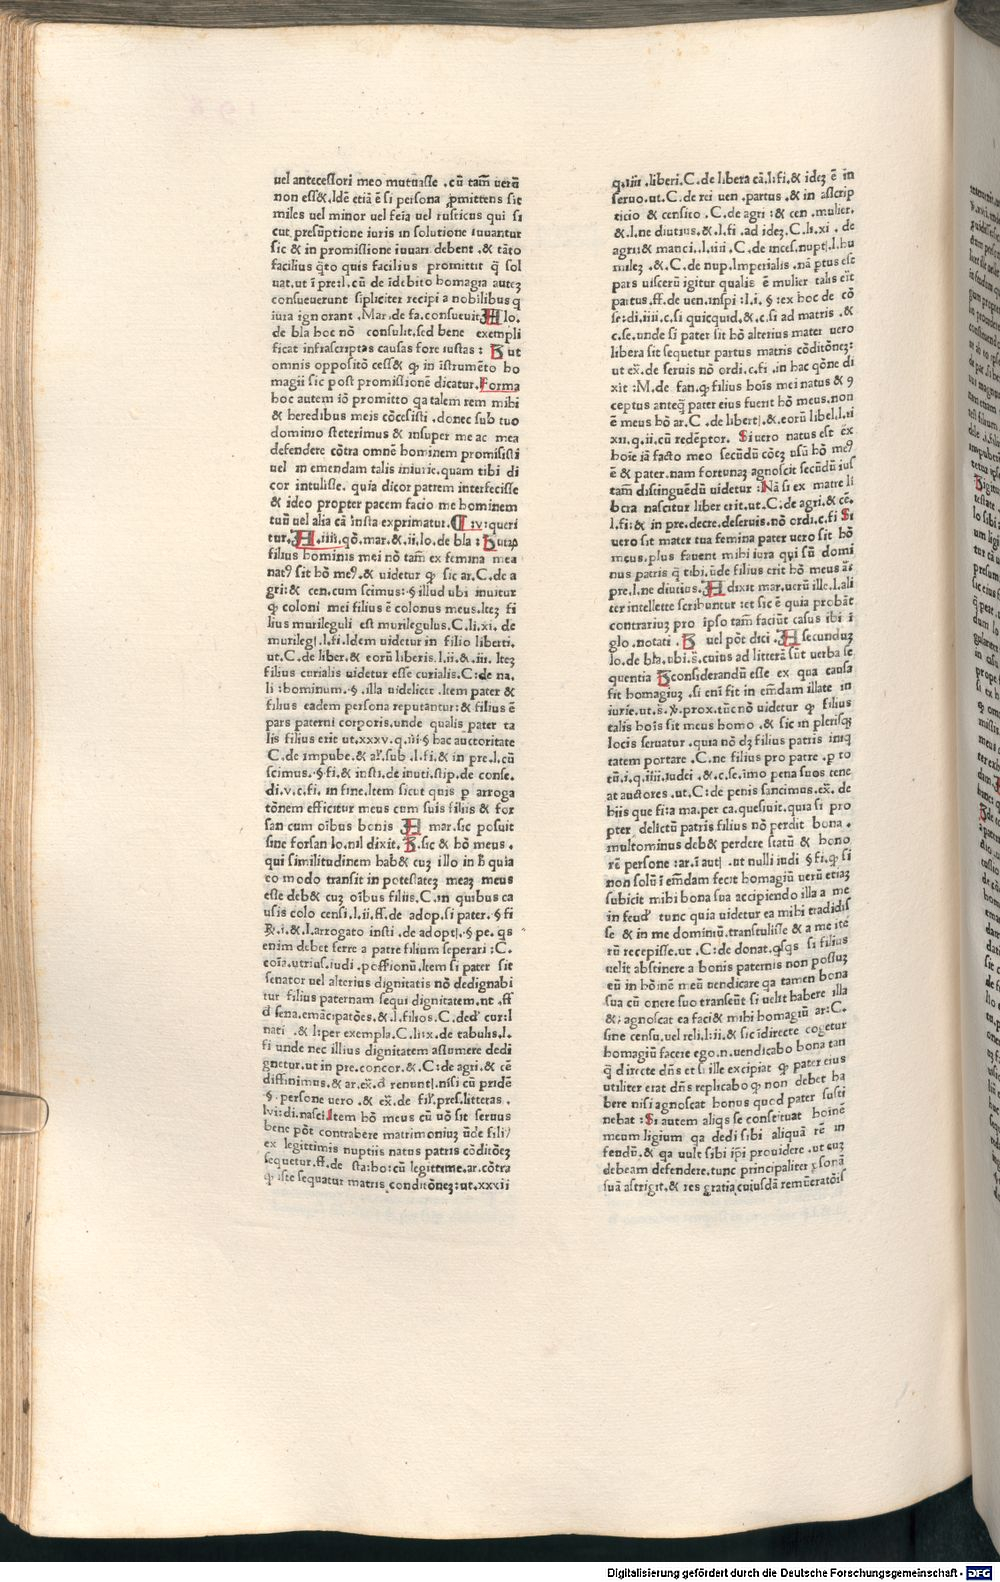 uel antecessori meo mutuasse .cū tam̄ uerū
non ess&.Idē etiā ē si persona ꝓmittens sit
miles uel minor uel feīa uel rusticus qui si
cut presūptione iuris in solutione iuuantur
sic & in promissione iuuari debent .& tāto
facilius q̄to quis facilius promittit q̄ sol
uat.ut ī pre:l.cū de īdebito homagia autez
consueuerunt sipliciter recipi a nobilibus q
iura ignorant .Mar.de fa.consueuit
de bla hoc nō consulit.sed bene exempli
ficat infrascriptas causas fore iustas : ut
omnis oppositō cess& ꝙ in īstrumēto ho
magii sic post promissionē dicatur.Forma
hoc autem iō promitto qa talem rem mihi
& heredibus meis cōcessisti .donec sub tuo
dominio steterimus & insuper me ac mea
defendere cōtra omnē hominem promisisti
uel in emendam talis iniurie.quam tibi di
cor intulisse. quia dicor patrem interfecisse
& ideo propter pacem facio me hominem
tuū uel alia cā iusta exprimatur. :v:queri
tur. .iiii.qō.mar.& .ii.lo.de bla :
filius hominis mei nō tam̄ ex femina mea
natꝰ sit hō meꝰ.& uidetur ꝙ sic ar.C.de a
gri:& cen.cum scimus:§ illud ubi inuitur
ꝙ coloni mei filius ē colonus meus.Itez fi
lius murileguli est murilegulus.C.li.xi. de
murileg.l.fi.Idem uidetur in filio liberti.
ut.C.de liber.& eorū liberis.l.ii.& .iii. Itez
filius curialis uidetur esse curialis.C:de na.
li :hominum.§ .illa uidelicet .Item pater &
filius eadem persona reputantur:& filius ē
pars paterni corporis.unde qualis pater ta
lis filius erit ut.xxxv.q.iii § hac auctoritate
C.de impube.& al.sub .l.fi.& in pre.l.cū
scimus.§.fi.& insti.de inuti.stip.de conse.
di.v.c.fi. in fine.Item sicut quis p arroga
tōnem efficitur meus cum suis filiis & for
san cum oībus bonis mar.sic posuit
sine forsan lo.nil dixit. .sic & hō meus.
qui similitudinem hab& cuz illo in h̄ quia
eo modo transit in potestatez meaz meus
esse deb& cuz oībus filiis.C.in quibus ca
usis colo censi.l.ii.ff.de adop.si pater. § fi
.i.& l.arrogato insti .de adopt.§ pe. qs
enim debet ferre a patre filium seperari :C.
coīa.utrius.iudi .possionū.Item si pater sit
senator uel alterius dignitatis nō dedignabi
tur filius paternam sequi dignitatem.ut .ff
d̄ sena.emācipatōes.& .l.filios.C.decꝰ cur:l
nati .& l:per exempla.C.li:x.de tabulis.l.
fi unde nec illius dignitatem assumere dedi
gnetur.ut in pre.concor.& .C:de agri.& cē
diffinimus.& ar.ex.d̄ renunt.nisi cū pridē
§ .persone uero .& ex.de pres.litteras .
lvi:di.nasci.Item hō meus cū uō sit seruus
bene pōt contrahere matrimoniuz ūde fili
ex legittimis nuptiis natus patris cōditōez
sequetur.ff.de sta:ho:cū legittime.ar.cōtra
ꝙ iste sequatur matris conditōnez:ut.xxxii
q.iiii .liberi.C.de libera cā.l:fi.& idez ē in
seruo.ut.C.de rei uen .partus .& in ascrip
ticio & censito .C.de agri :& cen .mulier.
& .l.ne diutius.& .l.fi .ad idez.C.li.xi . de
agri:& manci..l.iiii .C.de inces.nupt.l.hu
milez .&.C.de nup.Imperialis .nā ptus est
pars uiscerū igitur qualis ē mulier talis erit
partus .ff.de uen.inspi :l.i. § :ex hoc de cō
se:di.iiii.c.si quicquid.& .c.si ad matris .&
c.se.unde si pater sit hō alterius mater uero
libera sit sequetur partus matris cōditōnez:
ut ex̄.de seruis nō ordi.c.fi .in hac qōne di
xit :M.de fan.ꝙ filius hoīs mei natus & 9
ceptus anteq̄ pater eius fuerit hō meus.non
ē meus hō ar.C .de libert.& .eorū libel.l.ii
xii.q.ii.cū redēptor. Si uero natus est ex
hoīe iā facto meo secūdū cōez usū hō meꝰ
ē & pater.nam fortunaz agnoscit secūdū ius
tam̄ distinguēdū uidetur :Nā si ex matre li
bera nascitur liber erit.ut.C:de agri.& cē.
l.fi:& in pre.decre.deseruis.nō ordi.c.fi Si
uero sit mater tua femina pater uero sit hō
meus.plus fauent mihi iura qui sū domi
nus patris q̄ tibi.ūde filius erit hō meus ar̄
pre.l.ne diutius. dixit mar.uerū ille.l.ali
ter intellecte scribuntur :et sic ē quia probāt
contrariuz pro ipso tam̄ faciūt casus ibi ī
glo.notati . uel pōt dici . secunduz
lo.de bla.ubi.s̄.cuius ad litterā sūt uerba se
quentia considerandū esse ex qua causa
fit homagiuz .si eni fit in emdam illate in
iurie.ut.s̄. .prox.tūc nō uidetur ꝙ filius
talis hoīs sit meus homo .& sic in plerisqz
locis seruatur .quia nō dz filius patris iniq
tatem portare .C.ne filius pro patre .p to
tū.i.q.iiii.iudei .& .c.se.imo pena suos tene
at auctores .ut.C:de penis sancimus.ex̄. de
hiis que fi:a ma.per ca.quesiuit.quia si pro
pter delictū patris filius nō perdit bona .
multominus deb& perdere statū & bono
rē persone :ar.i aut .ut nulli iudi § fi.ꝙ si
non solū i emdam fecit homagiū uerū etiaz
subicit mihi bona sua accipiendo illa a me
in feudꝰ tunc quia uidetur ea mihi tradidis
se & in me dominiū.transtulisse & a me ite
rū recepisse.ut .C:de donat.qsqs si filius
uelit abstinere a bonis paternis non possuz
eū in hoīne meū uendicare qa tamen bona
sua cū onere suo transeūt si uelit habere illa
&; agnoscat ea faci& mihi homagiū ar:C.
sine censu.uel reli.l:ii.& sic īdirecte cogetur
homagiū facere ego.n.uendicabo bona tan
q̄ directe dn̄s et si ille excipiat ꝙ pater eius
utiliter erat dn̄s replicabo ꝙ non debet ha
bere nisi agnoscat bonus quod pater susti
nebat :Si autem aliqs se constituat hoīnē
meum ligium qa dedi sibi aliquā rē in
feudū.& qa uult sibi ip̄i prouidere .ut euz
debeam defendere.tunc principaliter ꝑsonā
suā astrigit.& res gratia cuiusdā remūeratōis
Digitalisierung gefördert durch die Deutsche Forschungsgemeinschaft - DFG